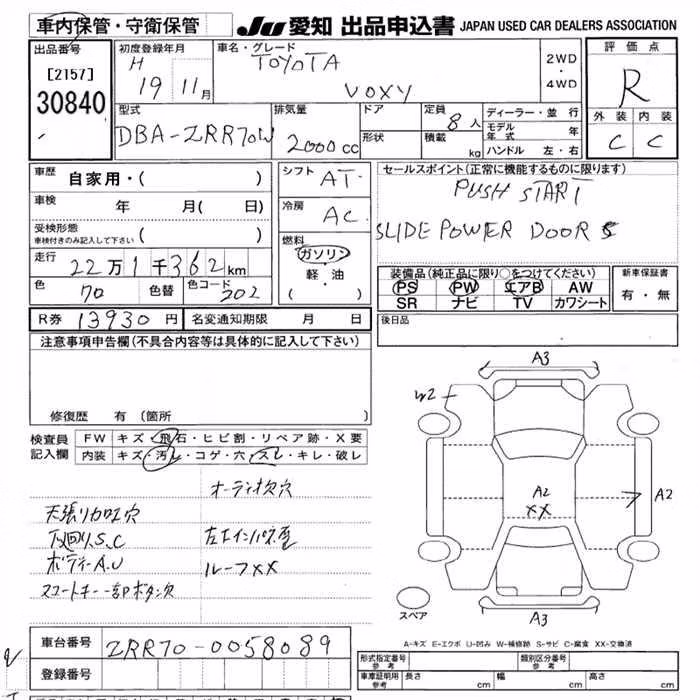 車内保管・守衛保管
JU 愛知 出品申込書 JAPAN USED CAR DEALERS ASSOCIATION
出品番号
[2157]
30840
初度登録年月
H 19 11月
車名・グレード
TOYOTA
VOXY
2WD
・
4WD
評価点
R
外装 内装
C C
型式
DBA-ZRR70W
排気量
2000 CC
ドア
形状
定員
8人
積載
kg
ディーラー・並行
モデル年式 年
ハンドル 左・右
車歴
自家用・( )
車検
年 月( 日)
受検形態
車検付きのみ記入して下さい
( )
走行
22万1千362km
色
70
色替
色コード
202
シフト
AT
冷房
AC
燃料
ガソリン
・
軽・油
・
( )
セールスポイント(正常に機能するものに限ります)
PUSH START
SLIDE POWER DOORS
装備品(純正品に限り○をつけてください)
PS PW エアB AW
SR ナビ TV カワシート
新車保証書
有・無
R券 13930円 名変通知期限 月 日
後日品
注意事項申告欄(不具合内容等は具体的に記入して下さい)
修復歴 有(箇所 )
検査員
記入欄
FW キズ・飛石・ヒビ割・リペア跡・X要
内装 キズ・汚レ・コゲ・穴・スレ・キレ・破レ
オーディオ欠穴
天張り
穴
下廻り、S、C
ボディーA.U
ルーフXX
スマートキー一部ボタン欠
A3
W2
A2
XX
A2
A3
スペア
A-キズ E-エクボ U-凹み W-補修跡 S-サビ C-腐食 XX-交換済
車台番号
ZRR70-0058089
登録番号
形式指定番号
参考
類別区分番号
参考
車庫証明用
参考
長さ cm 幅 cm 高さ cm